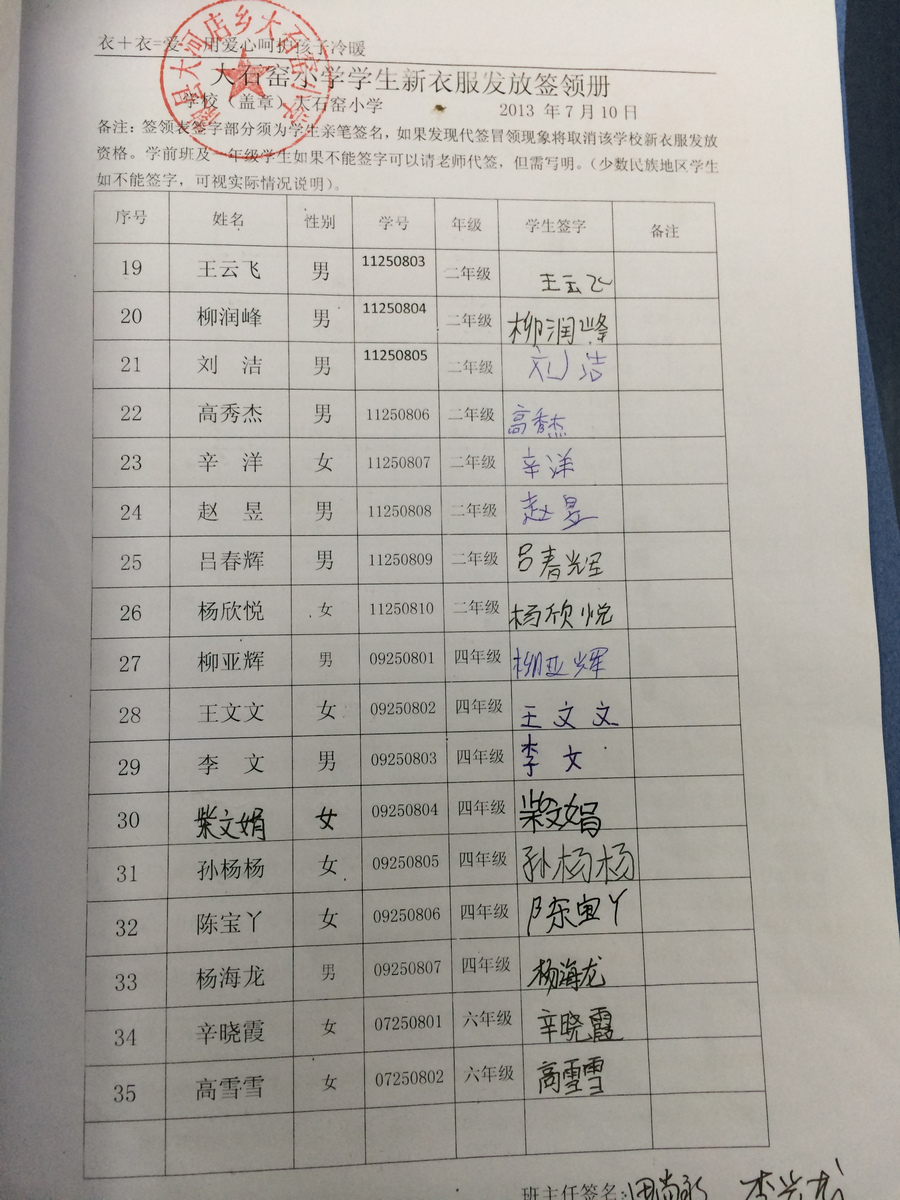 衣+衣=爱 用爱心呵护孩子冷暖
大石窑小学学生新衣服发放签领册
学校（盖章）大石窑小学 2013 年 7 月 10 日
备注：签领表签字部分须为学生亲笔签名，如果发现代签冒领现象将取消该学校新衣服发放
资格。学前班及一年级学生如果不能签字可以请老师代签，但需写明。（少数民族地区学生
如不能签字，可视实际情况说明）。
序号 姓名 性别 学号 年级 学生签字 备注
19 王云飞 男 11250803 二年级 王云飞
20 柳润峰 男 11250804 二年级 柳润峰
21 刘 洁 男 11250805 二年级 刘 洁
22 高秀杰 男 11250806 二年级 高秀杰
23 辛 洋 女 11250807 二年级 辛洋
24 赵 昱 男 11250808 二年级 赵昱
25 吕春辉 男 11250809 二年级 吕春辉
26 杨欣悦 女 11250810 二年级 杨欣悦
27 柳亚辉 男 09250801 四年级 柳亚辉
28 王文文 女 09250802 四年级 王文文
29 李 文 男 09250803 四年级 李 文
30 柴文娟 女 09250804 四年级 柴文娟
31 孙杨杨 女 09250805 四年级 孙杨杨
32 陈宝丫 女 09250806 四年级 陈宝丫
33 杨海龙 男 09250807 四年级 杨海龙
34 辛晓霞 女 07250801 六年级 辛晓霞
35 高雪雪 女 07250802 六年级 高雪雪
班主任签名: